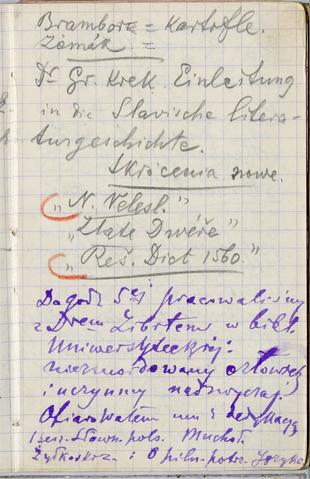 Brambory = Kartofle.
Zomák =
Dr Gr. Krek Einleitung
in die Slavische litera-
turgeschichte.
Skrócenia nowe.
„N. Velesl.”
„Zlate Dwéře”
„Reš. Dict 1560.”
Do godz 5ej pracowaliśmy
z Drem Zibrtem w bibl.
Uniwersyteckiej:
niezmordowany człowiek
i uczynny nadzwyczaj.
Ofiarowałem mu z dedykacyą
Muchoł.
i O piln. potrz. Języka